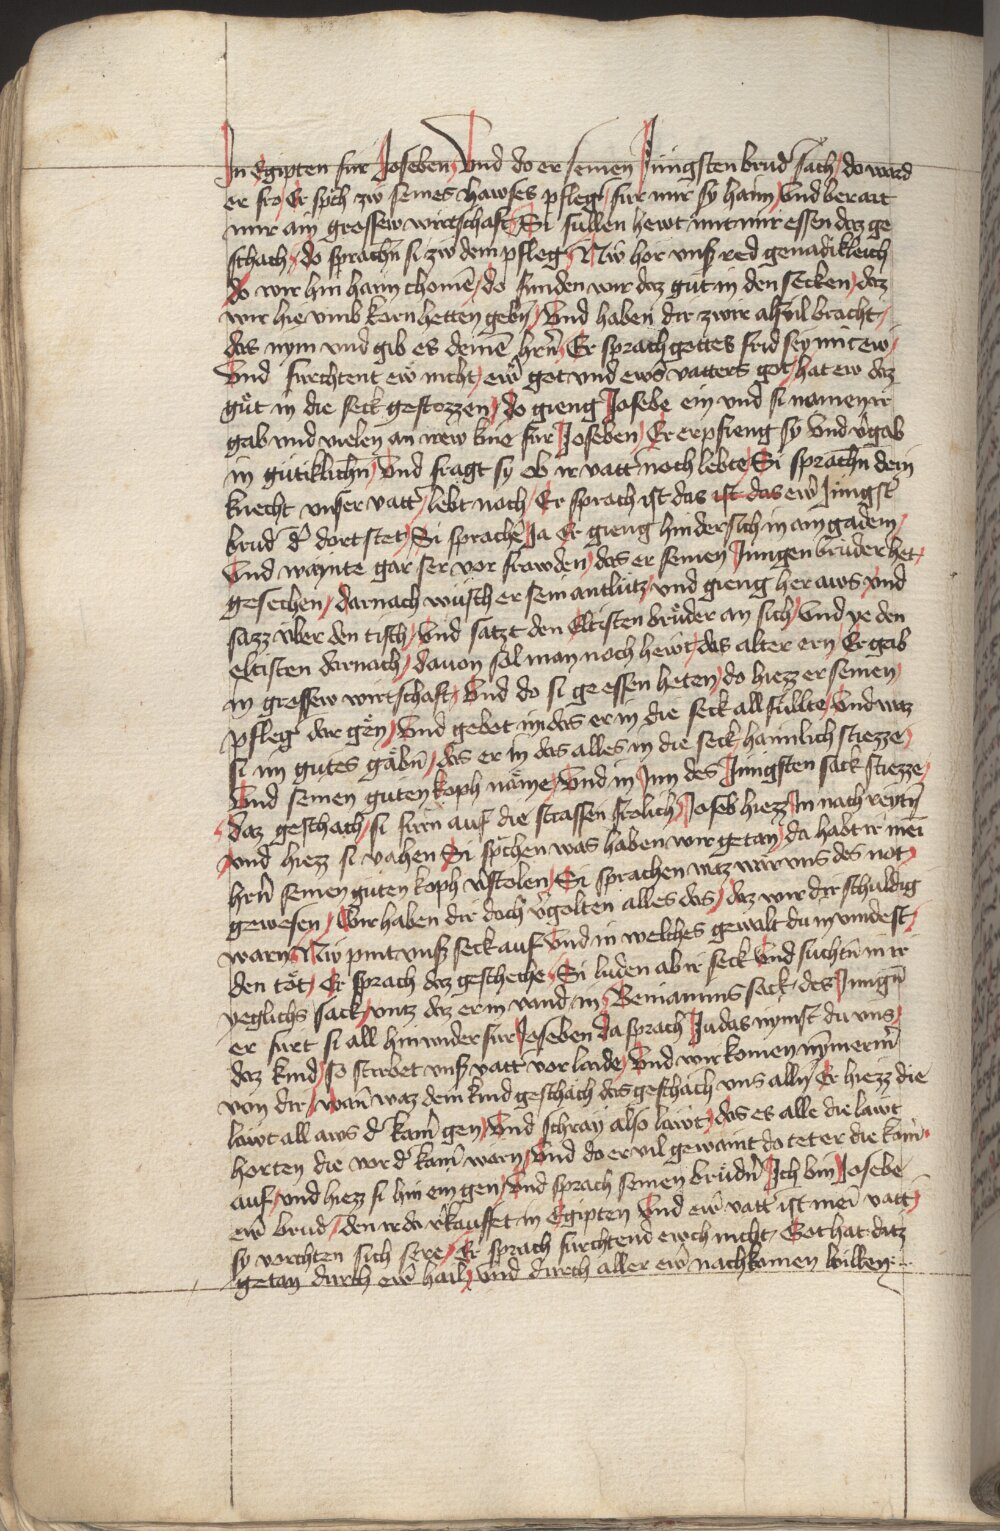 In Egipten für Joseben / Vnd do er seinen Jüngsten brud̓ sach / do ward
er fro / Er sp̈ch zw seines hawses pfleg̓ / für mir sy haim / Vnd berait
mir ain grossew wirtschaft / Si süllen hewt mit mir essen daz ge
schach / do sprachn̄ si zw dem pfleg̓ / Nw hor vnß red genadikleich
do wir hin haim chomē / do funden wir daz gut in den secken / daz
wir hie vmb korn hetten gebn̄ / Vnd haben dir zwir als vil bracht /
das nym vnd gib es deinē hrn̄ / Er sprach gottes frid sey mit ew /
Vnd fürchtent ew nicht / ewr̄ got vnd ewrs vatters got / hat ew daz
gůt in die seck gestozzen / do gieng Josebe ein vnd si namen ir
gab vnd vielen an irew knie für Joseben / Er erpfieng sy Vnd v̓gab
in gütiklichn̄ / Vnd fragt sy ob ir vatt̓ noch lebte / Si sprachn̄ dein
knecht vnser vatt̓ / lebt noch / Er sprach ist das ist das ewr̄ Jüngst̓
brud̓ d̓ dort stet / Si sprachē Ja Er gieng hindersich in ain gadem /
Vnd wainte gar ser vor frawden / das er seinen Jungen brüder het /
gesechen / darnach wüsch er sein antlütz / vnd gieng her aws / vnd
sazz über den tisch / Vnd satzt den Eltisten brüder an sich / Vnd ye den
eltisten darnach / dauon sol man noch hewt / das alter ern / Er gab
in grossew wirtschaft / Vnd do si geessen heten / do hiezz er seinen
pfleg̓ dar gen / Vnd gebot im das er in die seck all füllte / Vnd waz
si im gutes gäbn̄ / das er in das alles in die seck haimlich stiezze /
Vnd seinen guten koph näme / Vnd in Inn des Jüngsten sack stiezze /
daz geschach / si fürn auf die strassen frolich / Joseb hiezz In nach reytn̄
vnd hiezz si vahen Si sp̈chen was haben wir getan / da habt ir mei̅
hrn̄ seinen guten koph v̓stolen / Si sprachen waz wär vns des not
gewesen / Wir haben dir doch v̓golten alles das / daz wir dir schuldig
warn / Nw pint vnß seck auf Vnd in welches gewalt du in vindest /
den töt / Er sprach daz geschehe / Si luden ab ir seck Vnd suchtn̄ in ir
yeglichs sack / vntz daz er in vand in Beniamins sack / des Jungn̄
er furt si all hin wider für Joseben da sprach Judas nymst du vns
daz kind / so stirbet vnß vatt̓ vor laide / Vnd wir komen nymermr̄
von dir / wan̄ waz dem kind geschäch das geschäch vns alln̄ Er hiezz die
läwt all aws d̓ kam̄ gen / Vnd schray also läwt / das es alle die läwt
horten die vor d̓ kam̄ warn / Vnd do er vil gewaint do tet er die kam̄
auf / vnd hiezz si hin ein gen / vnd sprach seinen brüdn̄ Ich bin Josebe
ewr̄ brud̓ / den ir da v̓kauffet in Egipten Vnd ewr̄ vatt̓ ist mei̅ vatt̓ /
sy vorchten sich sere / Er sprach fürchtend ewch nicht / Got hat ditz
getan durch ewr̄ hail / Vnd durch aller ewr̄ nachkomen willen